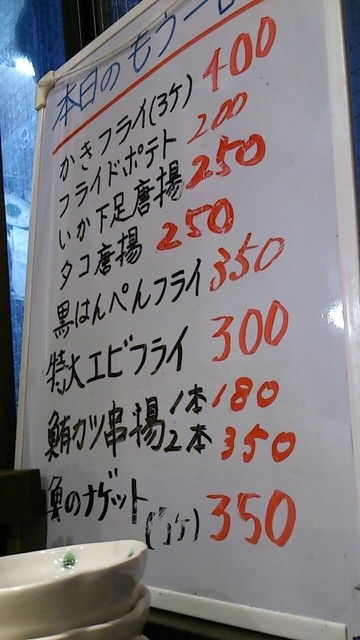 本日のもう一
かきフライ(3ケ) 400
フライドポテト 200
いか下足唐揚 250
タコ唐揚 250
黒はんぺんフライ 350
特大エビフライ 300
鮪カツ串揚 1本 180
2本 350
魚のナゲット(5ケ) 350